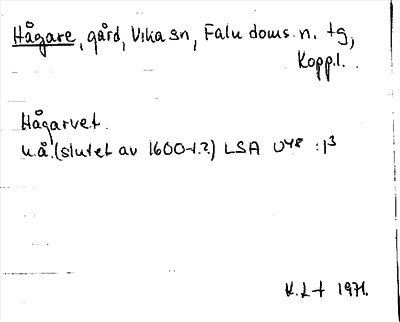 Hågare, gård, Vika sn, Falu doms. n. tg,
Kopp.l.
Hågarvet.
u.å. (slutet av 1600-t.?) LSA U48 :1³
K.L-t 1971.